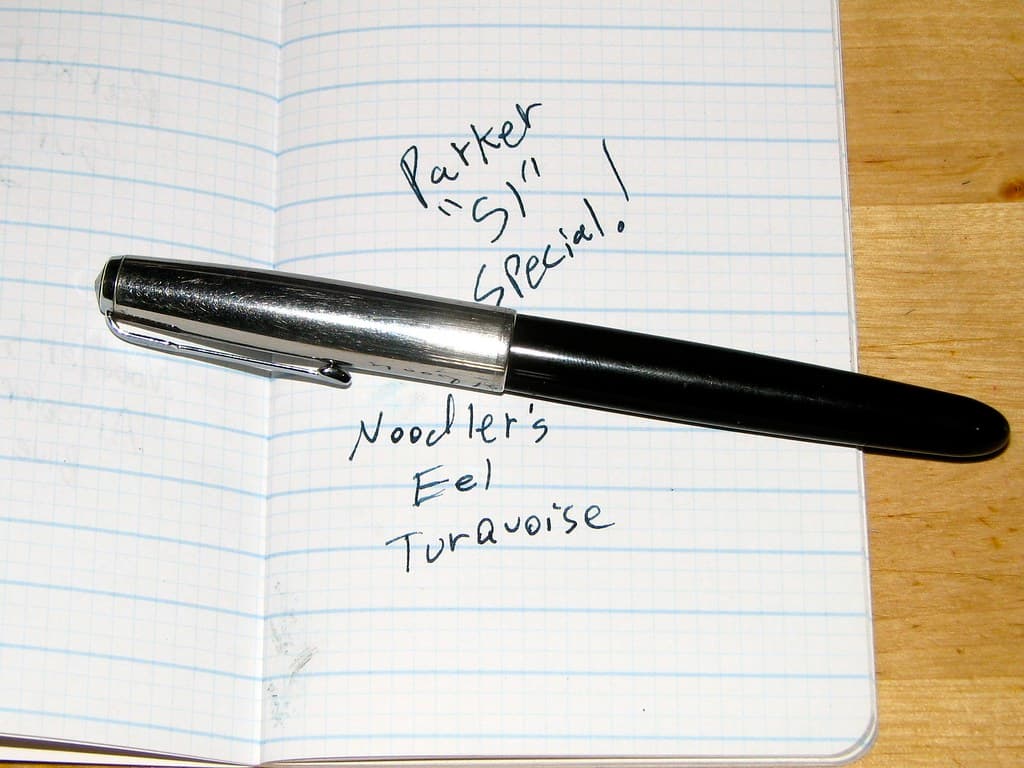 Parker
"51"
Special!
Noodler's
Eel
Turquoise